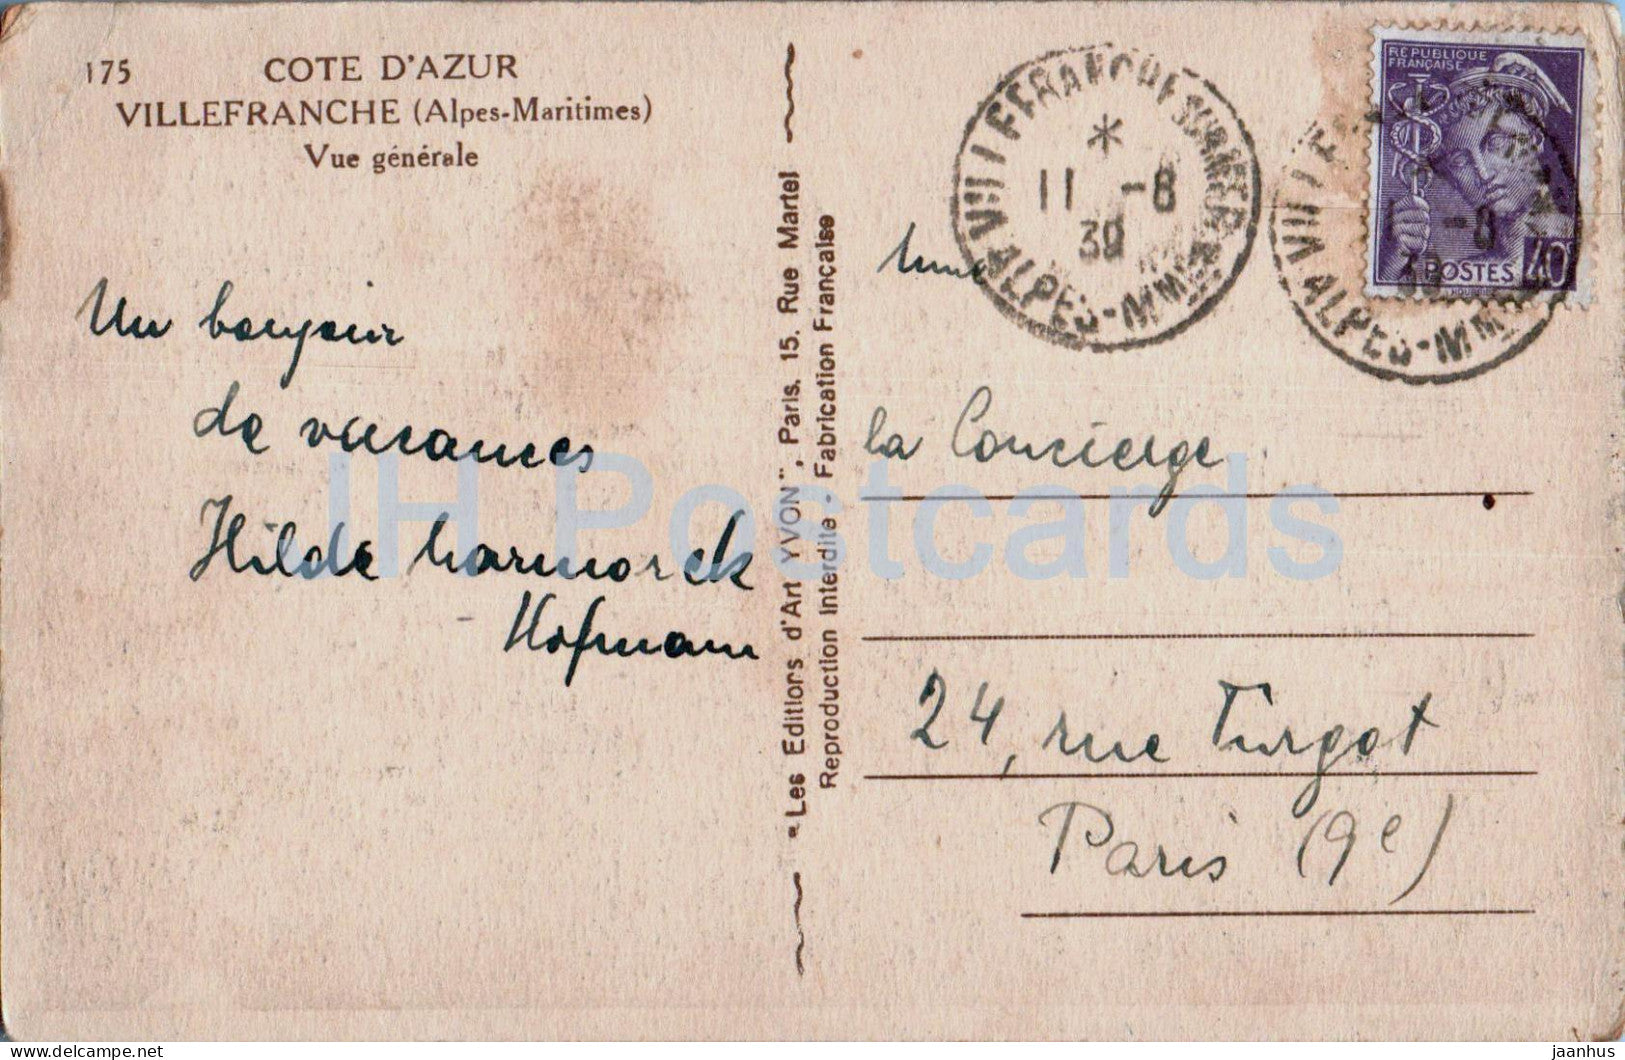 175 COTE D'AZUR
VILLEFRANCHE (Alpes-Maritimes)
Vue générale
Un bonjour
de vacances
Hilde
Hofmann
"Les Editions d'Art YVON", Paris, 15, Rue Martel
Reproduction Interdite - Fabrication Française
VILLEFRANCHE SUR MER
*
11 -8
39
ALPES-MMES
RÉPUBLIQUE
FRANÇAISE
POSTES 40c
VILLEFRANCHE
-8
39
ALPES-MM
Mme
la Concierge
24, rue Turgot
Paris (9e)
IH Postcards
delcampe.net
jaanhus